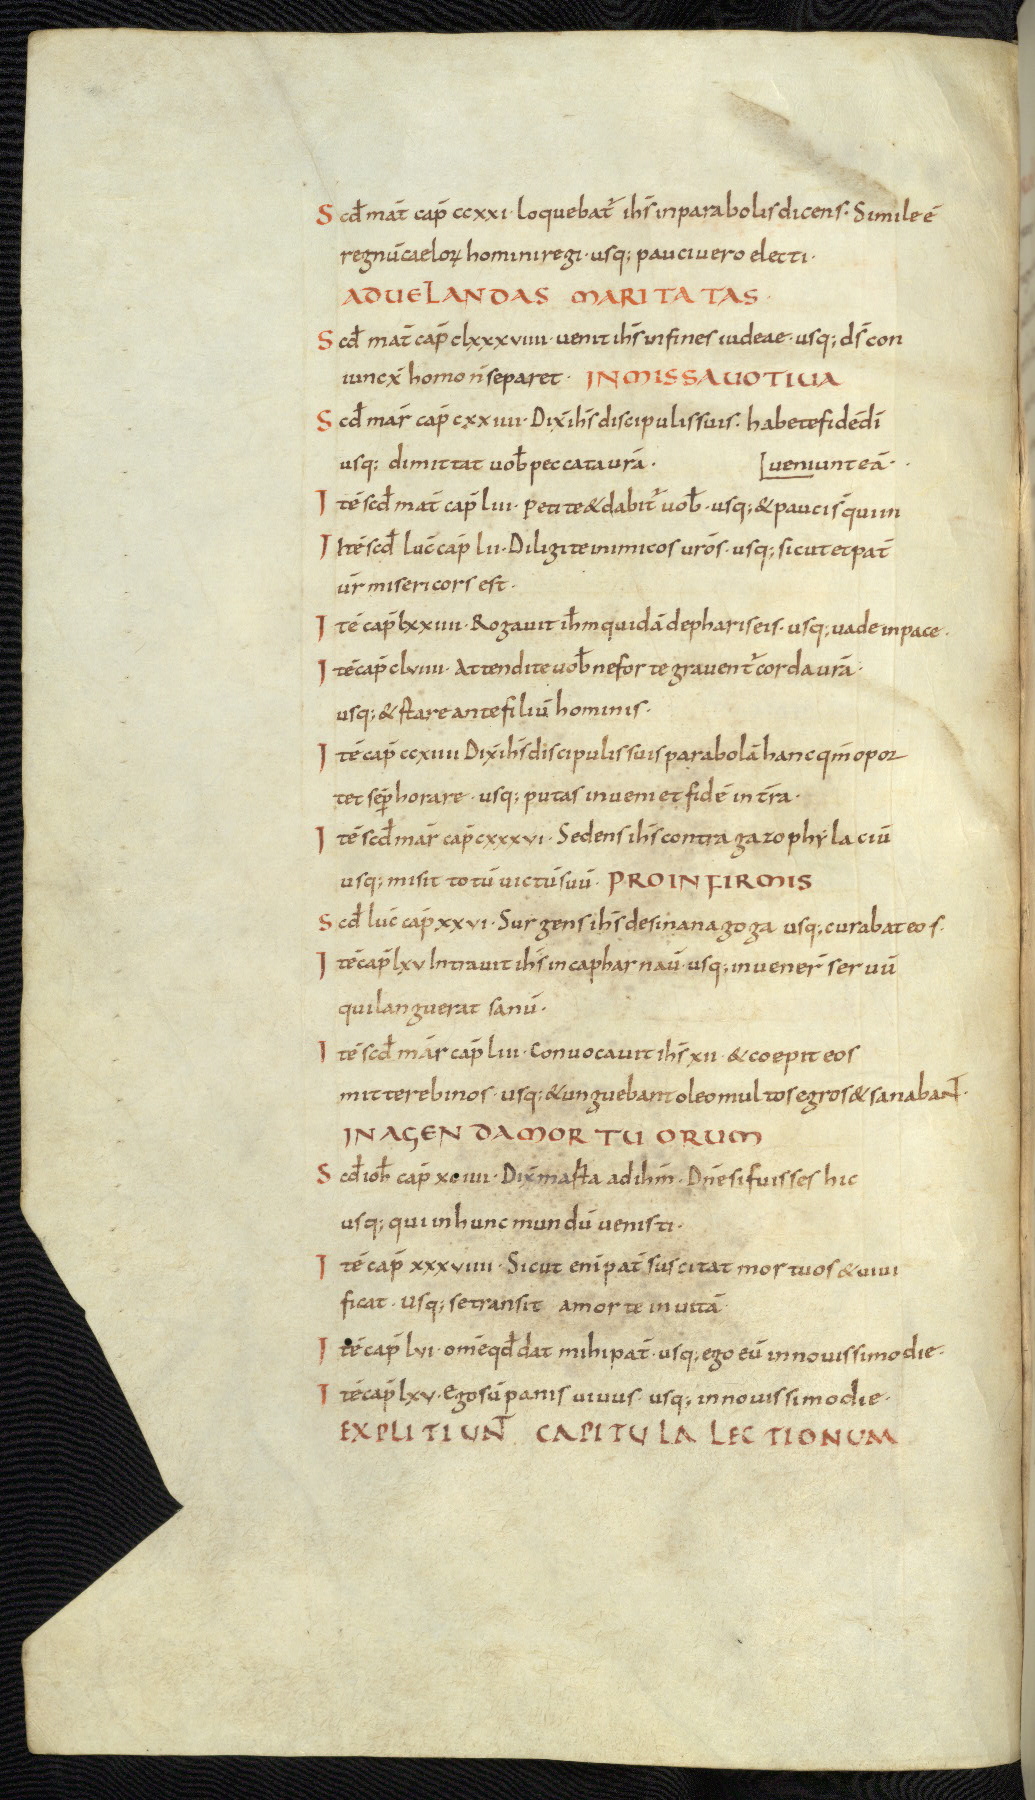 Scd̄ mat̄ cap̄ ccxxi· loquebat᷒ ihs̄ inparabolis dicens· Simile ē
regnū caeloꝝ homini regi· usq; pauci uero electi·
AD UELANDAS MARITATAS·
Scd̄ mat̄ cap̄ clxxxviiii· uenit ihs̄ in fines iudeae· usq; ds̄ con
iunex̄ homo n̄ separet· IN MISSA UOTIUA
Scd̄ mar̄ cap̄ cxxiiii· Dix̄ ihs̄ discipulis suis· habete fidē dī
usq; dimittat uob̄ peccata urā·
Itē scd̄ mat̄ cap̄ lui· Petite & dabit᷒ uob̄· usq; & pauci s̄ qui in
ueniunt eā·
Itē scd̄ luc̄ cap̄ lii· Diligite inimicos urōs· usq; sicut et pat̄
ur̄ misericors est·
Itē cap̄ lxxiiii· Rogauit ihm̄ quidā de phariseis· usq; uade in pace·
Itē cap̄ clviiii· Attendite uob̄ ne forte grauent᷒ corda urā·
usq; & stare ante filiū hominis·
Itē cap̄ ccxiiii Dix̄ ihs̄ discipulis suis parabolā hanc qm̄ opor
tet sēp horare· usq; putas inueniet fidē in tr̄a·
Itē scd̄ mar̄ cap̄ cxxxvi· Sedens ihs̄ contra gazophylaciū
usq; misit totū uictū suū· PRO INFIRMIS
Scd̄ luc̄ cap̄ xxvi· Surgens ihs̄ de sinanagoga usq; curabat eos·
Itē cap̄ lxv Intrauit ihs̄ in capharnaū· usq; inuener̄ seruū
qui languerat sanū·
Itē scd̄ mar̄ cap̄ liii· Conuocauit ihs̄ xii· & coepit eos
mittere binos· usq; & unguebant oleo multos egros & sanabant̄·
IN AGENDA MORTUORUM
Scd̄ ioh̄ cap̄ xciiii· Dix̄ marta ad ihm̄· Dn̄e si fuisses hic
usq; qui in hunc mundū uenisti·
Itē cap̄ xxxviiii· Sicut eni pat̄ suscitat mortuos & uiui
ficat· Usq; se transit a morte in uitā·
Itē cap̄ lvi· omē qd̄ dat mihi pat̄· usq; ego eū in nouissimo die·
Itē cap̄ lxv· Ego sū panis uiuus· usq; in nouissimo die·
EXPLITIUNT̄ CAPITULA LECTIONUM